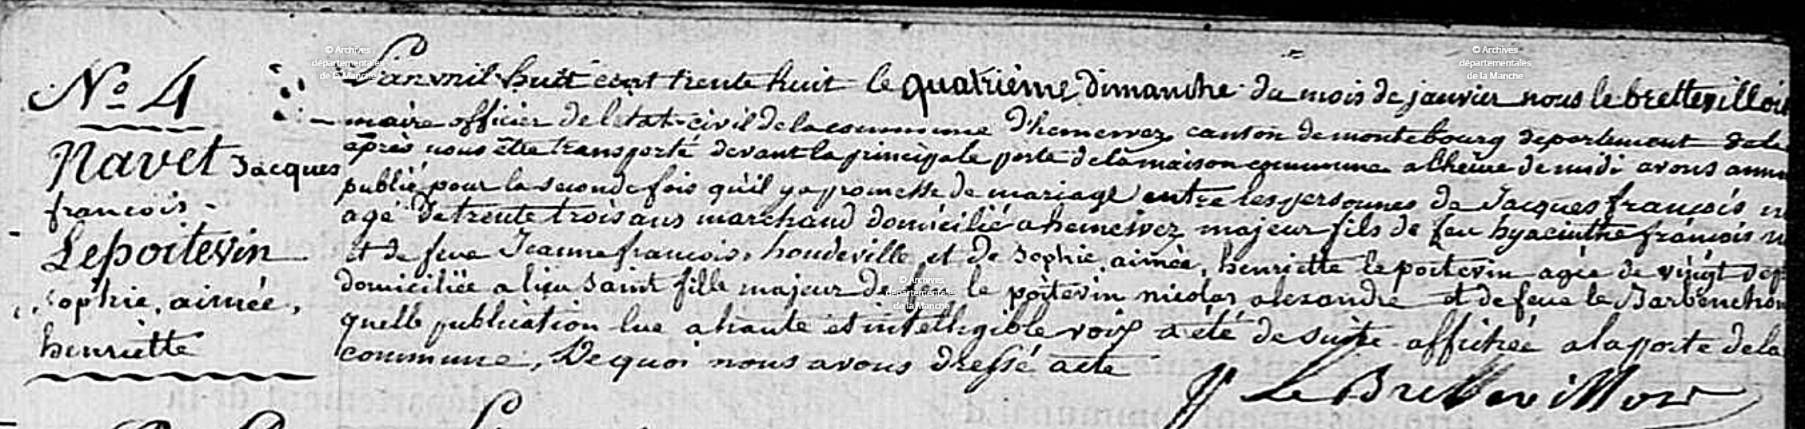 N.o 4
Navet Jacques
françois.
Lepoitevin
Sophie, aimée,
henriette
L'an mil huit cent trente huit le quatrième dimanche du mois de janvier nous le brettevillois
maire officier de letat-civil de la commune d'hemevez canton de montebourg departement de la
après nous être transporté devant la principale porte de la maison commune a lheure de midi avons ann
publié pour la seconde fois qu'il y a promesse de mariage entre les personnes de Jacques françois
agé de trente trois ans marchand domicilié a hemevez majeur fils de feu hyacinthe françois
et de feue Jeanne françoise houdeville et de Sophie, aimée, henriette le poitevin agée de vingt sept
domiciliée a lieu saint fille majeur de feu le poitevin nicolas alexandre et de feue le Barbenchon
quelle publication lue a haute et intelligible voix a été de suite affichée a la porte de la
commune, De quoi nous avons dressé acte
Le Brettevillois
© Archives
départementales
de la Manche
© Archives
départementales
de la Manche
© Archives
départementales
de la Manche